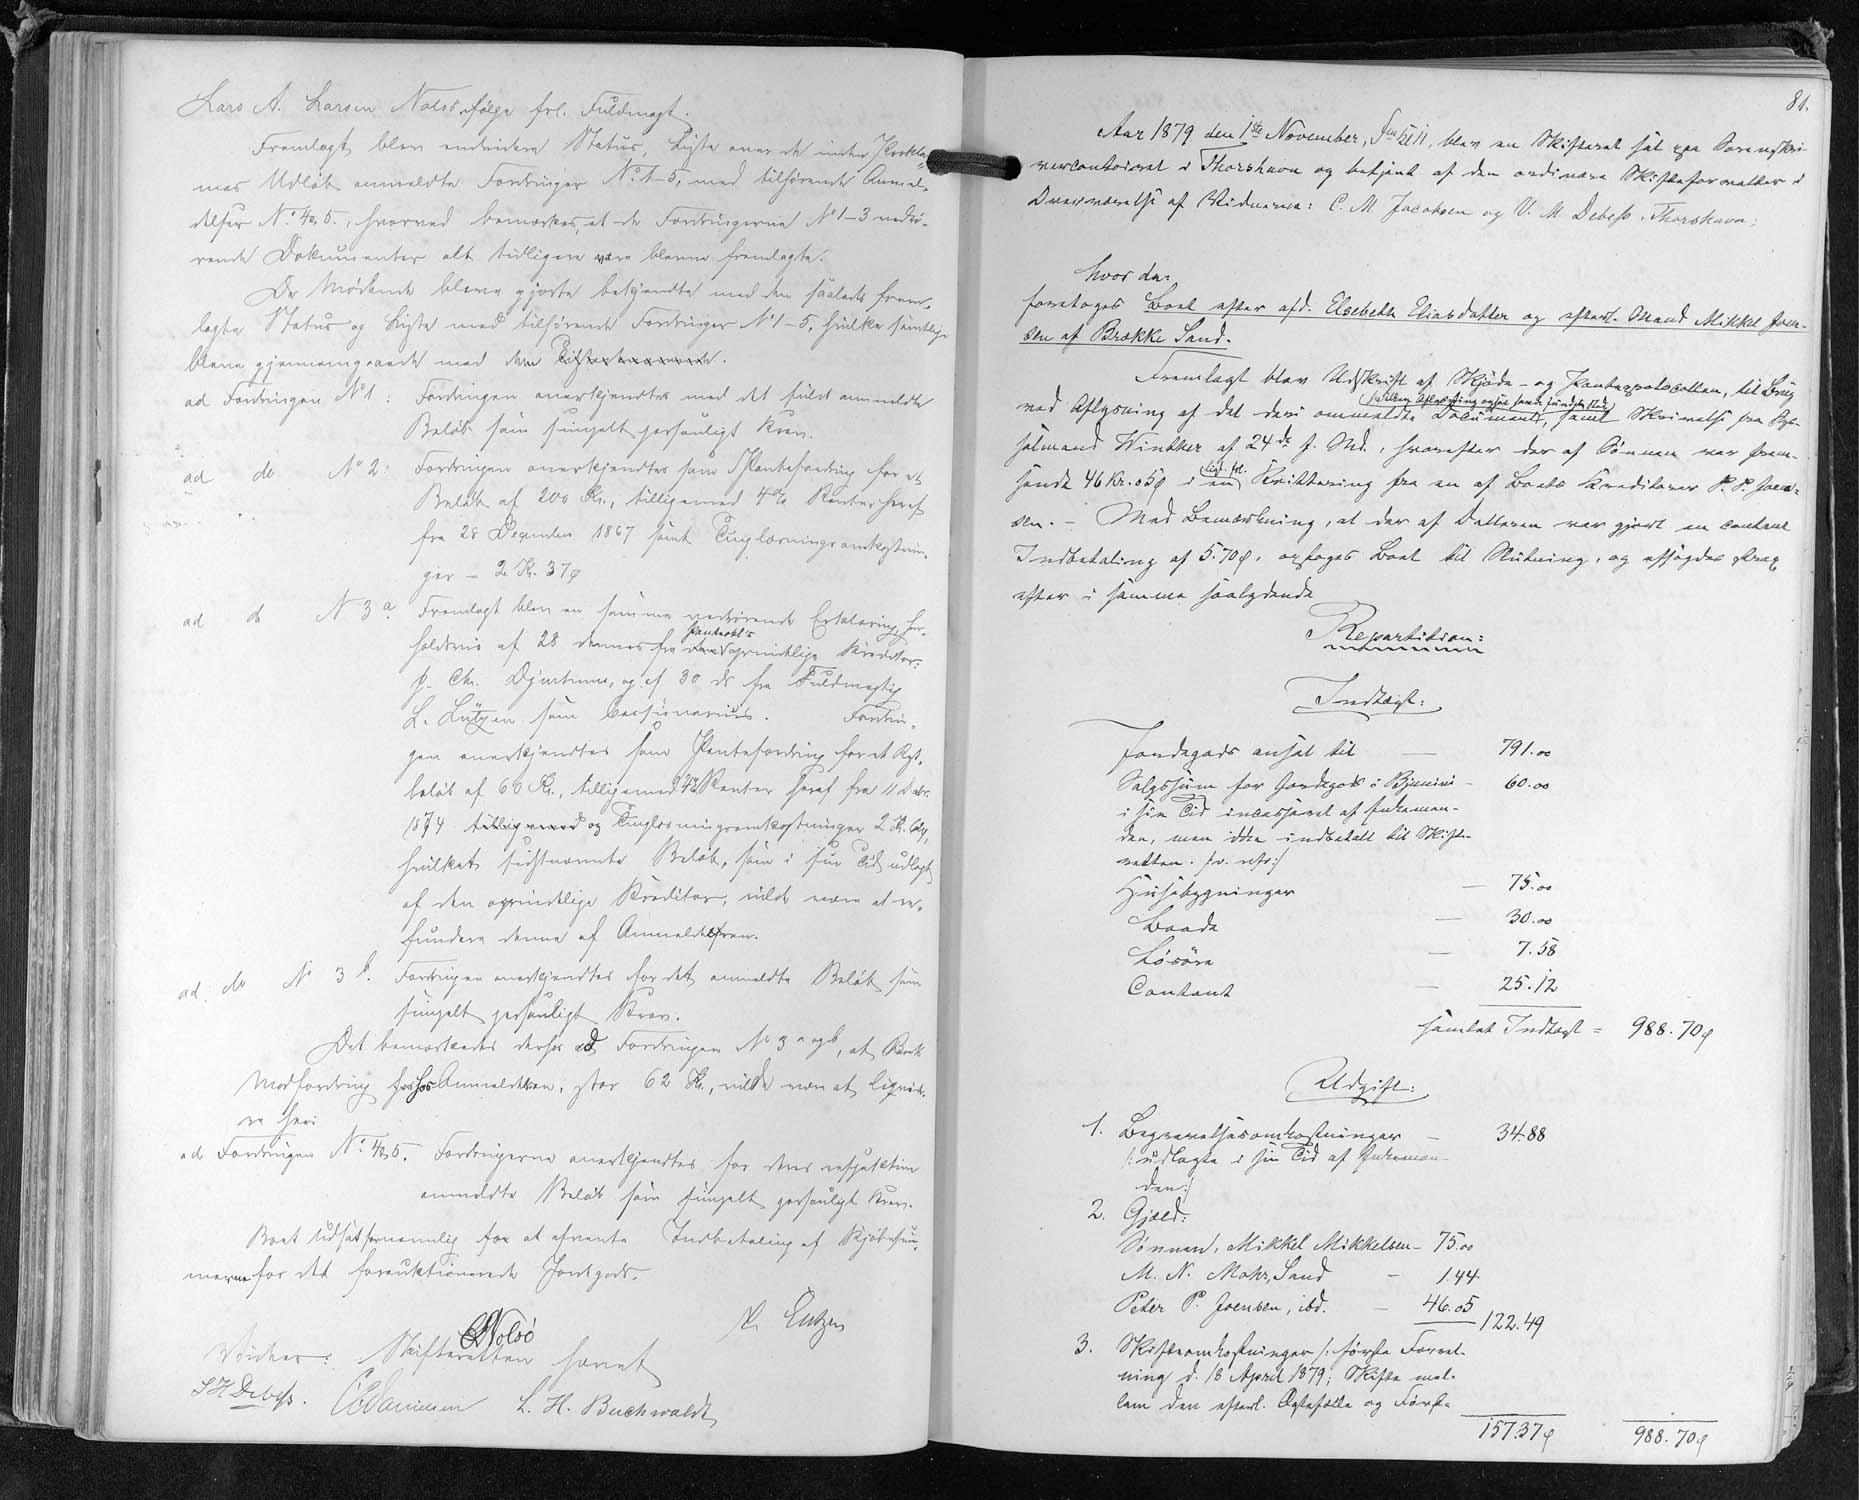 Lars A. Larsen Nolsø ifølge frl. Fuldmagt.
Fremlagt blev endvidere Status, Liste over de inden Procla-
mas Udløb anmeldte Fordringer No 1-5, med tilhørende Anmel-
delser No 4 & 5, hvorved bemærkes, at de Fordringerne No 1-3 vedrø-
rende Dokumenter alt tidligere vare blevne fremlagte.
De Mødende bleve gjorte bekjendte med den saaledes frem-
lagte Status og Liste med tilhørende Fordringer No 1-5, hvilke samtlige
bleve gjennemgaaede med dem
ad Fordringen No 1: Fordringen anerkjendtes med det fulde anmeldte
Beløb som simpelt personligt Krav.
ad do No 2: Fordringen anerkjendtes som Pantefordring for et
Beløb af 200 Kr., tilligemed 4% Renter heraf
fra 28 December 1867 samt Tinglæsningsomkostnin-
ger - 2 Kr. 37 ø
ad do No 3 a. Fremlagt blev en samme vedrørende Erklæring, hen-
holdsvis af 28 dennes fra Pantets oprindelige Kreditor:
J. Chr. Djurhuus, og af 30 ds fra Fuldmægtig
L. Lützen som Cessionarius. Fordrin-
gen anerkjendtes som Pantefordring for et Rest-
beløb af 66 Kr., tilligemed 4% Renter heraf fra 11 Decbr.
1874 tilligemed og Tinglæsningsomkostninger 2 Kr.
hvilket sidstnævnte Beløb, som i sin Tid udlagt
af den oprindelige Kreditor, vilde være at re-
fundere denne af Anmelderen.
ad. do No 3 b. Fordringen anerkjendtes for det anmeldte Beløb som
simpelt personligt Krav.
Det bemærkedes derhos ad Fordringen No 3 a og b, at Boets
Modfordring hos Anmelderen, stor 62 Kr., vilde være at liquide-
re heri
ad Fordringen No 4 & 5. Fordringerne anerkjendtes for deres respektive
anmeldte Beløb som simpelt personligt Krav.
Boet udsat fornemmelig for at afvente Indbetaling af Kjøbesum-
merne for det forauktionerede Jordegods.
Nolsö
P. Lützen
Vidner: Skifteretten hævet
S H Debess. C E Danielsen L. H. Buchwaldt
81.
Aar 1879 den 1ste November, Fm. Kl 11, blev en Skifteret sat paa Sorenskri-
vercontoiret i Thorshavn og betjent af den ordinære Skifteforvalter i
Overværelse af Vidnerne: C. M. Jacobsen og V. M. Debess, Thorshavn;
hvor da:
foretoges Boet efter afd. Elsebeth Eliasdatter og efterl. Mand Mikkel Joen-
sen af Brække Sand.
Fremlagt blev Udskrift af Skjøde- og Panteprotocollen, til Brug
ved Aflysning af det deri ommeldte Document, samt Skrivelse fra Sys-
selmand Winther af 24de f. Md., hvorefter der af Sönnen var frem-
sendt 46 Kr. 05 ø i en Kvittering fra en af Boets Kreditorer P. P. Joen-
sen. - Med Bemærkning, at der af Datteren var gjort en contant
Indbetaling af 5.70 ø, optoges Boet til Slutning, og afsagdes strax
efter i samme saalydende
Repartition:
Indtægt:
Jordegods ansat til — 791.00
Salgssum for Jordegods i Bjuniri - 60.00
i sin Tid incasseret af Enkeman-
den, men ikke indbetalt til Skifte-
retten.
Husebygninger — 75.00
Baade — 30.00
Lösöre — 7.58
Contant — 25.12
samlet Indtægt = 988.70 ø
Udgift:
1. Begravelsesomkostninger — 34.88
/: udlagte i sin Tid af Enkeman-
den :/
2. Gjæld:
Sönnen, Mikkel Mikkelsen - 75.00
M. N. Mohr, Sand - 1.44
Peter P. Joensen, ibd. - 46.05 122.49
3. Skifteomkostninger /: første Forret-
ning d. 18 April 1879; Skifte mel-
lem den efterl. Ægtefælle og Först-
157.37 ø 988.70 ø